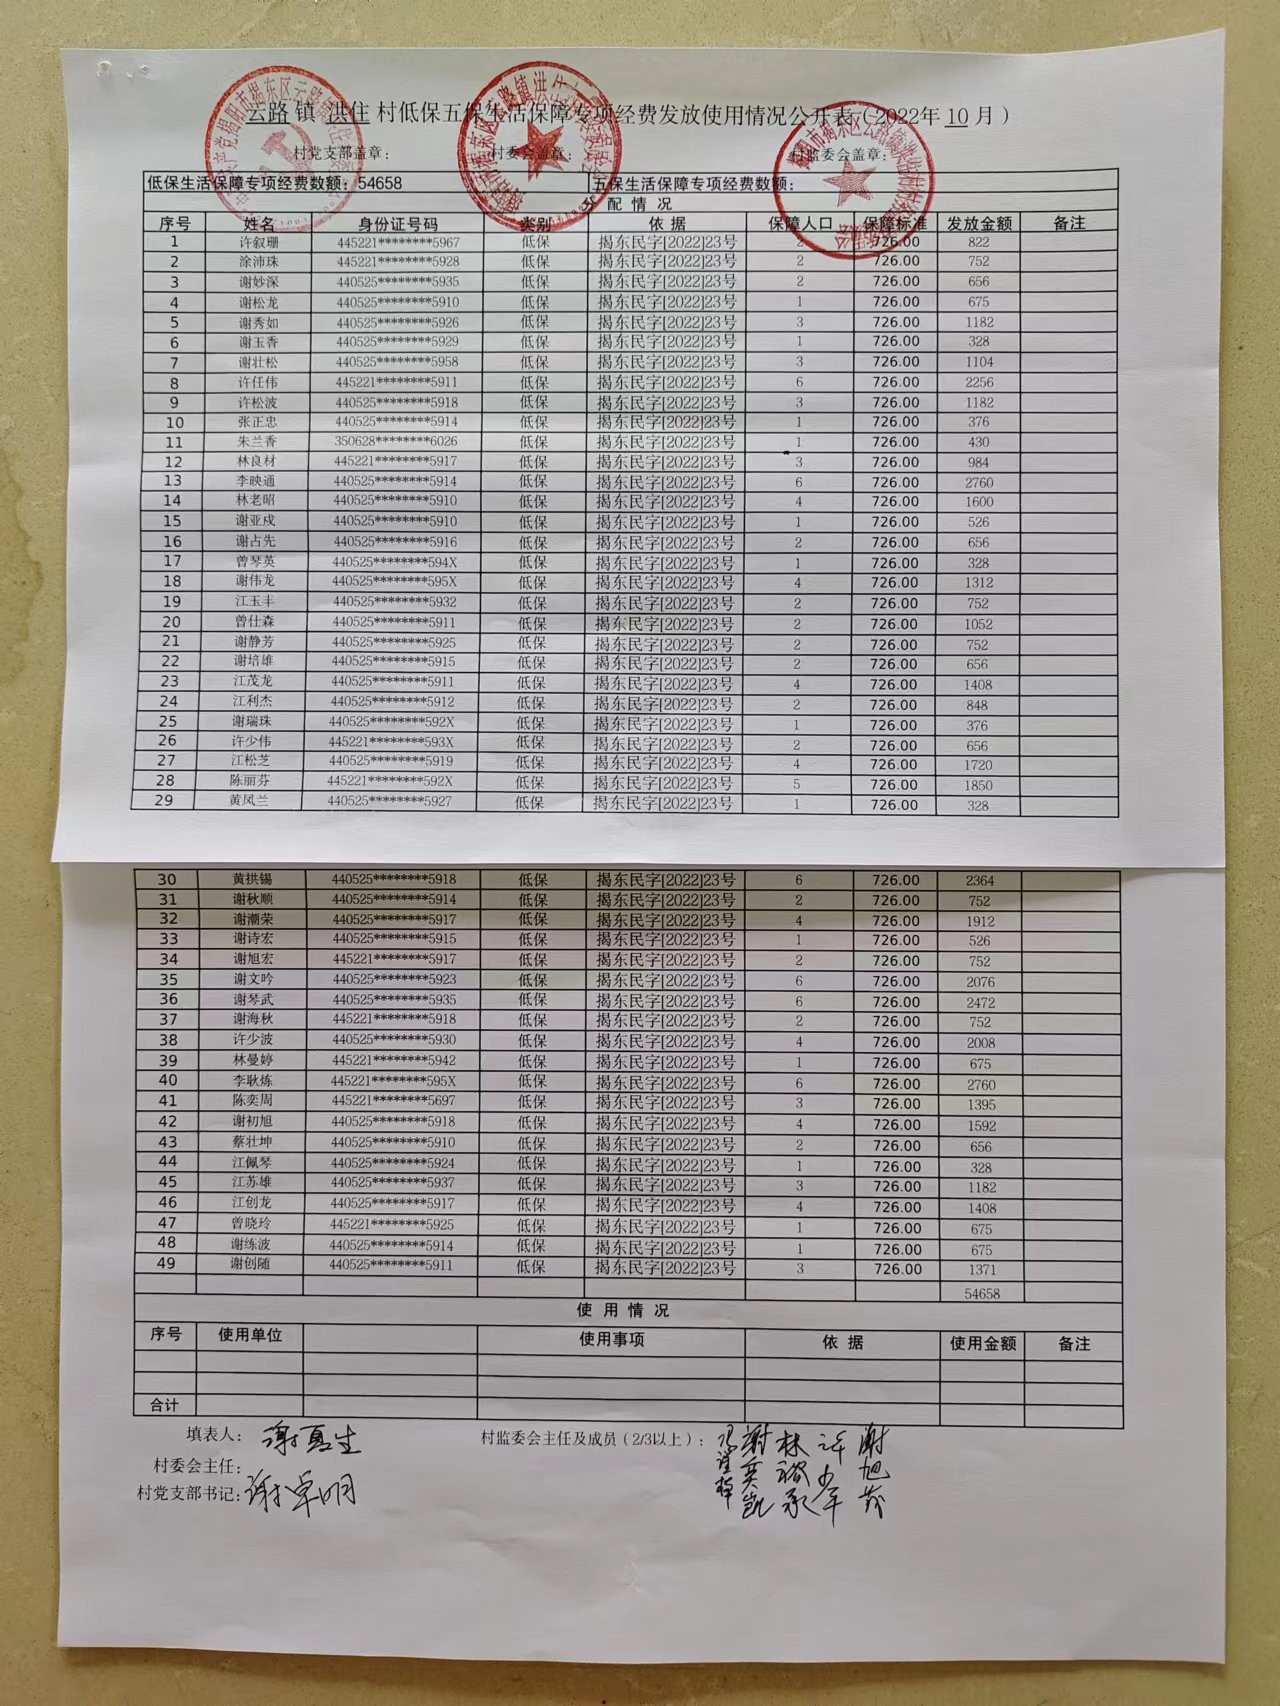 云路 镇 洪住 村低保五保生活保障专项经费发放使用情况公开表（2022年 10 月）
村党支部盖章： 村委会盖章： 村监委会盖章：
低保生活保障专项经费数额：54658 五保生活保障专项经费数额：
分 配 情 况
序号 姓名 身份证号码 类别 依 据 保障人口 保障标准 发放金额 备注
1 许叙珊 445221********5967 低保 揭东民字[2022]23号 2 726.00 822
2 涂沛珠 445221********5928 低保 揭东民字[2022]23号 2 726.00 752
3 谢妙深 440525********5935 低保 揭东民字[2022]23号 2 726.00 656
4 谢松龙 440525********5910 低保 揭东民字[2022]23号 1 726.00 675
5 谢秀如 440525********5926 低保 揭东民字[2022]23号 3 726.00 1182
6 谢玉香 440525********5929 低保 揭东民字[2022]23号 1 726.00 328
7 谢壮松 440525********5958 低保 揭东民字[2022]23号 3 726.00 1104
8 许任伟 445221********5911 低保 揭东民字[2022]23号 6 726.00 2256
9 许松波 440525********5918 低保 揭东民字[2022]23号 3 726.00 1182
10 张正忠 440525********5914 低保 揭东民字[2022]23号 1 726.00 376
11 朱兰香 350628********6026 低保 揭东民字[2022]23号 1 726.00 430
12 林良材 445221********5917 低保 揭东民字[2022]23号 3 726.00 984
13 李映通 440525********5914 低保 揭东民字[2022]23号 6 726.00 2760
14 林老昭 440525********5910 低保 揭东民字[2022]23号 4 726.00 1600
15 谢亚成 440525********5910 低保 揭东民字[2022]23号 1 726.00 526
16 谢占先 440525********5916 低保 揭东民字[2022]23号 2 726.00 656
17 曾琴英 440525********594X 低保 揭东民字[2022]23号 1 726.00 328
18 谢伟龙 440525********595X 低保 揭东民字[2022]23号 4 726.00 1312
19 江玉丰 440525********5932 低保 揭东民字[2022]23号 2 726.00 752
20 曾仕森 440525********5911 低保 揭东民字[2022]23号 2 726.00 1052
21 谢静芳 440525********5925 低保 揭东民字[2022]23号 2 726.00 752
22 谢培雄 440525********5915 低保 揭东民字[2022]23号 2 726.00 656
23 江茂龙 440525********5911 低保 揭东民字[2022]23号 4 726.00 1408
24 江利杰 440525********5912 低保 揭东民字[2022]23号 2 726.00 848
25 谢瑞珠 440525********592X 低保 揭东民字[2022]23号 1 726.00 376
26 许少伟 445221********593X 低保 揭东民字[2022]23号 2 726.00 656
27 江松芝 440525********5919 低保 揭东民字[2022]23号 4 726.00 1720
28 陈丽芬 445221********592X 低保 揭东民字[2022]23号 5 726.00 1850
29 黄凤兰 440525********5927 低保 揭东民字[2022]23号 1 726.00 328
30 黄拱锡 440525********5918 低保 揭东民字[2022]23号 6 726.00 2364
31 谢秋顺 440525********5914 低保 揭东民字[2022]23号 2 726.00 752
32 谢潮荣 440525********5917 低保 揭东民字[2022]23号 4 726.00 1912
33 谢诗宏 440525********5915 低保 揭东民字[2022]23号 1 726.00 526
34 谢旭宏 445221********5917 低保 揭东民字[2022]23号 2 726.00 752
35 谢文吟 440525********5923 低保 揭东民字[2022]23号 6 726.00 2076
36 谢琴武 440525********5935 低保 揭东民字[2022]23号 6 726.00 2472
37 谢海秋 445221********5918 低保 揭东民字[2022]23号 2 726.00 752
38 许少波 440525********5930 低保 揭东民字[2022]23号 4 726.00 2008
39 林曼婷 445221********5942 低保 揭东民字[2022]23号 1 726.00 675
40 李耿炼 445221********595X 低保 揭东民字[2022]23号 6 726.00 2760
41 陈奕周 445221********5697 低保 揭东民字[2022]23号 3 726.00 1395
42 谢初旭 440525********5918 低保 揭东民字[2022]23号 4 726.00 1592
43 蔡壮坤 440525********5910 低保 揭东民字[2022]23号 2 726.00 656
44 江佩琴 440525********5924 低保 揭东民字[2022]23号 1 726.00 328
45 江苏雄 440525********5937 低保 揭东民字[2022]23号 3 726.00 1182
46 江创龙 440525********5917 低保 揭东民字[2022]23号 4 726.00 1408
47 曾晓玲 445221********5925 低保 揭东民字[2022]23号 1 726.00 675
48 谢练波 440525********5914 低保 揭东民字[2022]23号 1 726.00 675
49 谢创随 440525********5911 低保 揭东民字[2022]23号 3 726.00 1371
54658
使 用 情 况
序号 使用单位 使用事项 依 据 使用金额 备注
合计
填表人： 谢夏生 村监委会主任及成员（2/3以上）： 谢奕凯 许少军
村委会主任：
村党支部书记： 谢卓明